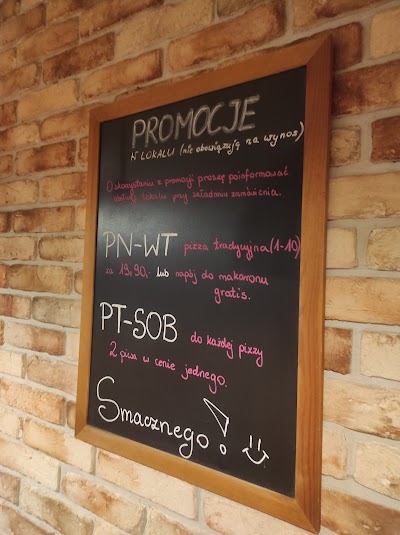 PROMOCJE
W LOKALU (nie obowiązują na wynos)
O skorzystaniu z promocji proszę poinformować
obsługę lokalu przy składaniu zamówienia.
PN-WT pizza tradycyjna (1-10)
za 19,90,- lub napój do makaronu
gratis.
PT-SOB do każdej pizzy
2 piwa w cenie jednego.
Smacznego!